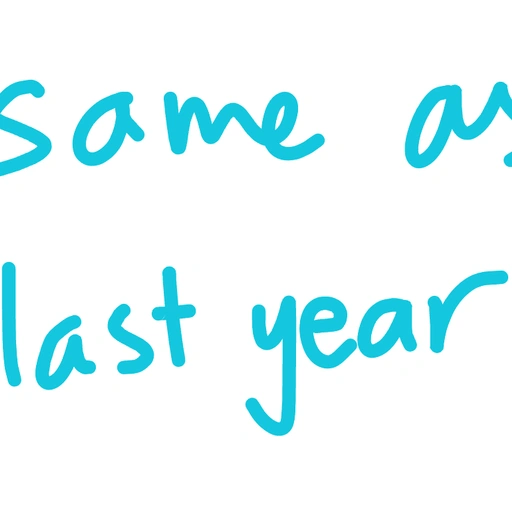 same as
last year